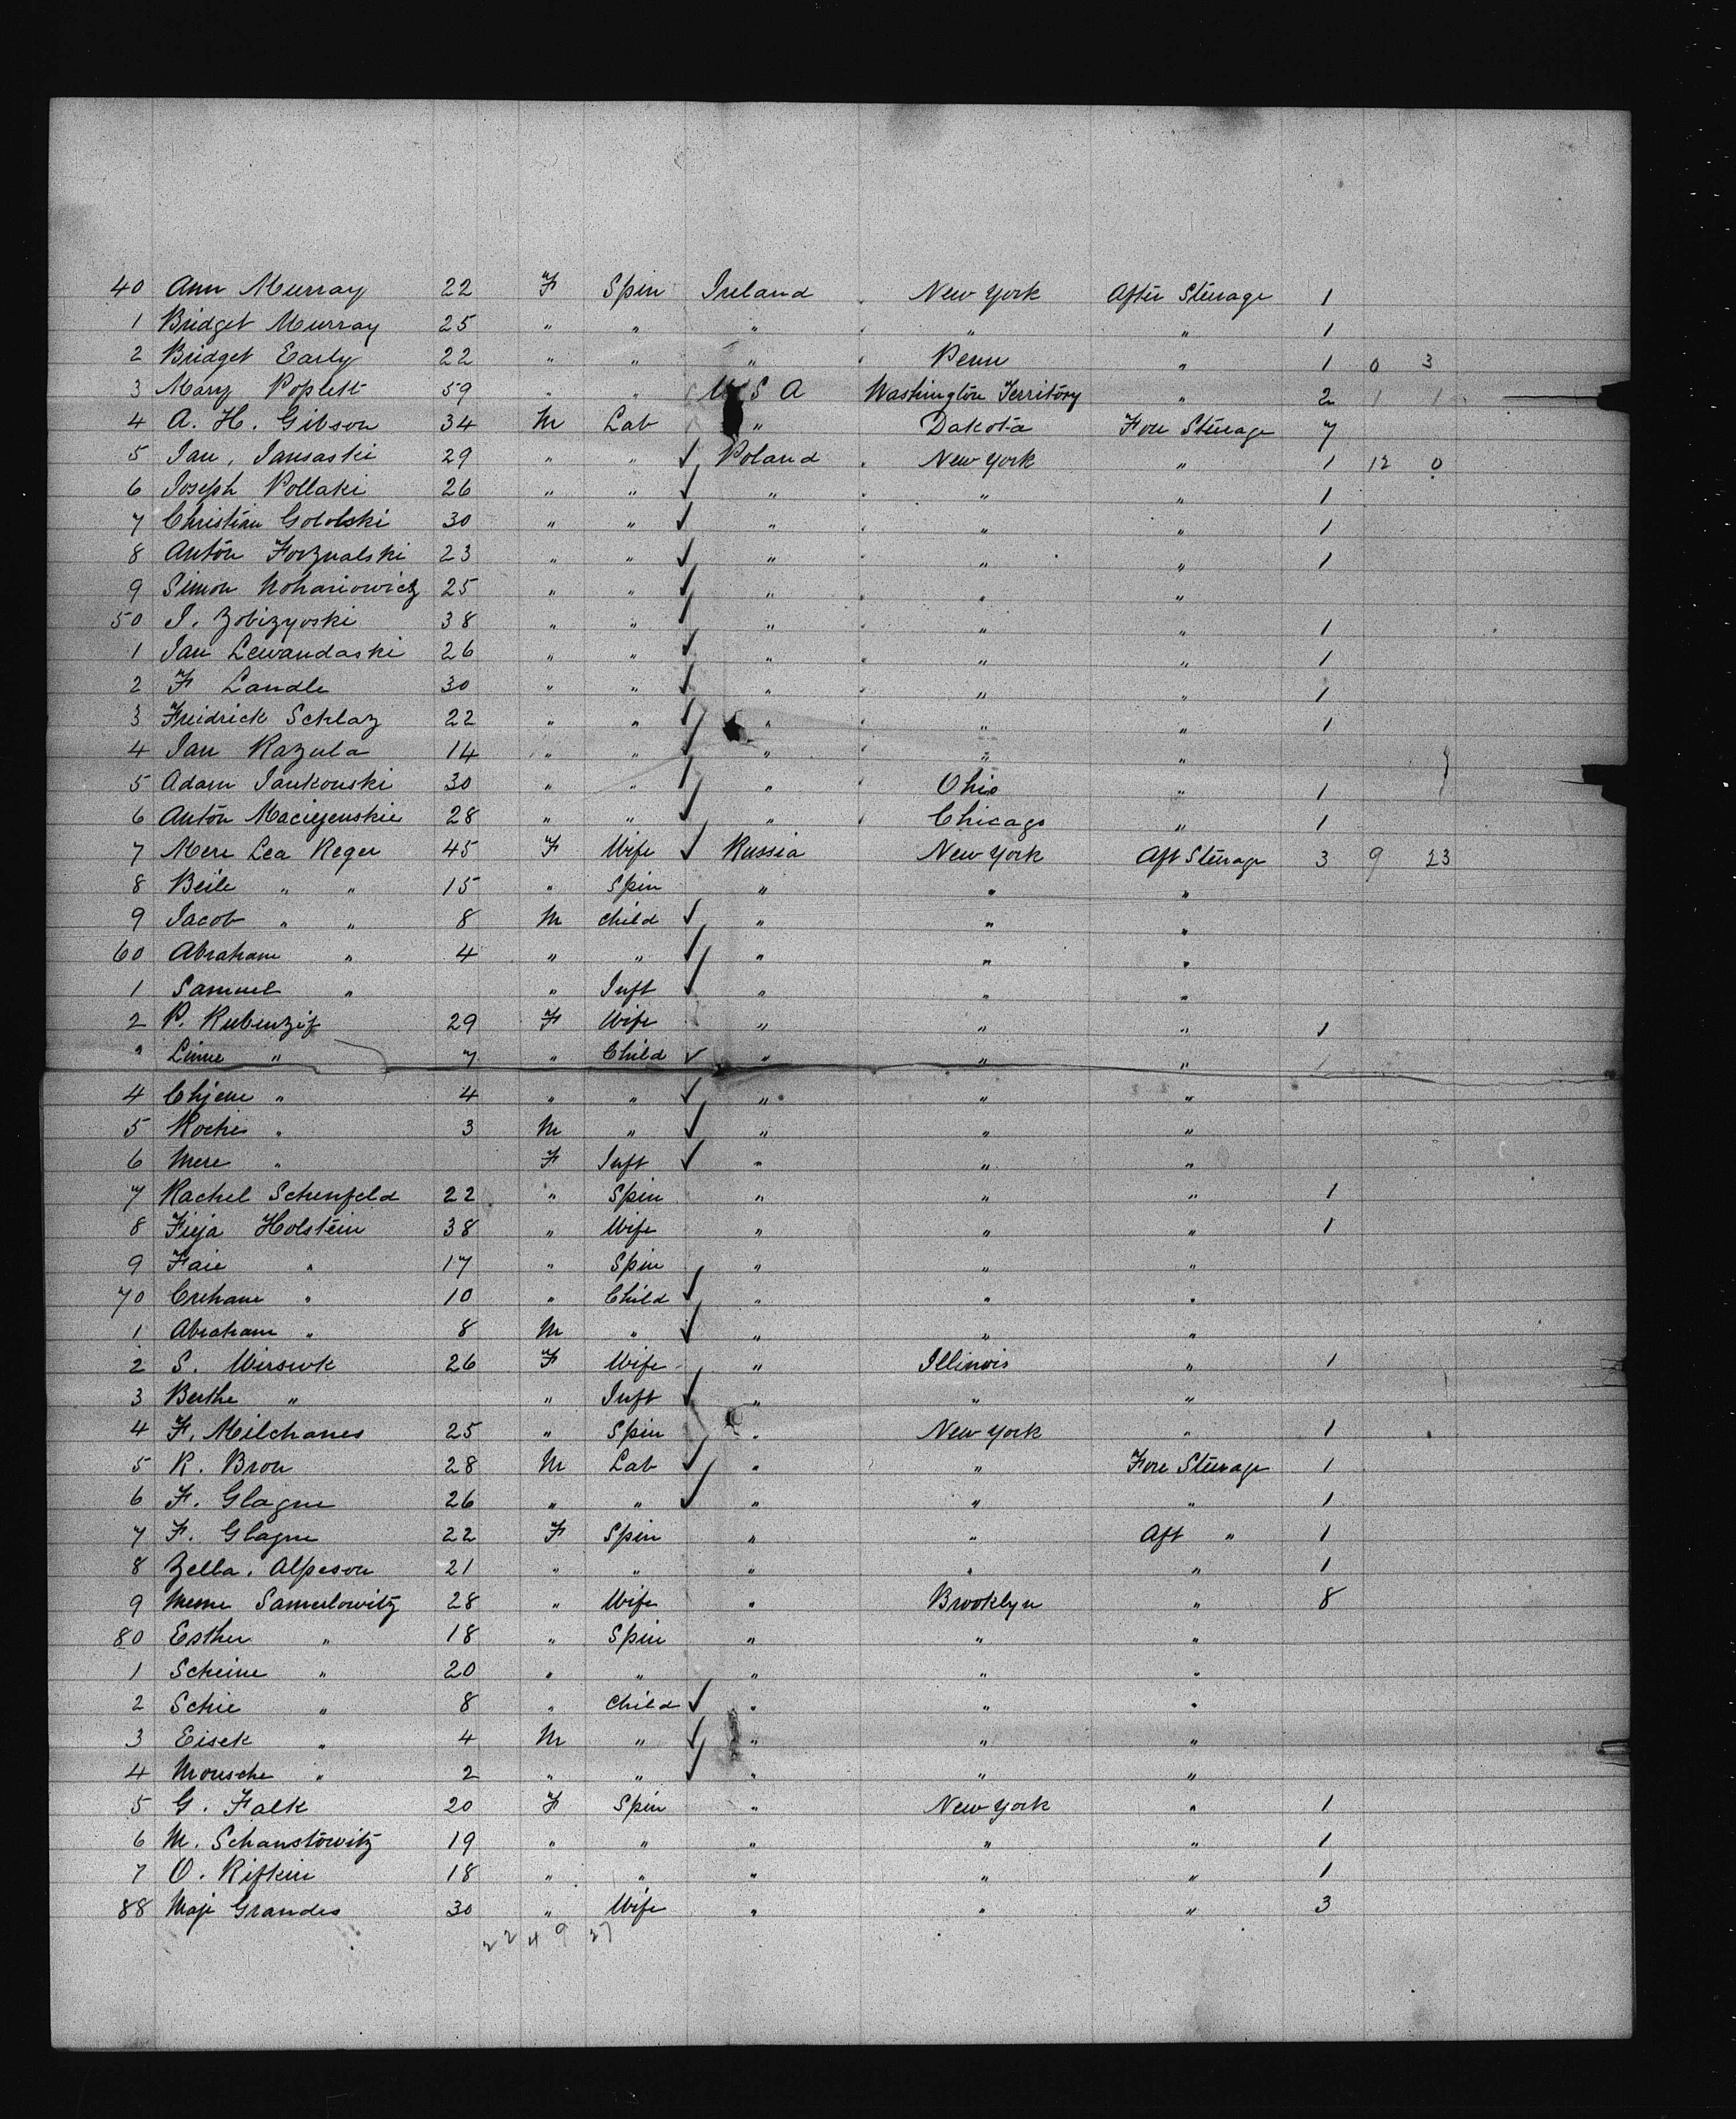 40 Ann Murray 22 F Spin Ireland New York After Steerage 1
1 Bridget Murray 25 " " " " " 1
2 Bridget Early 22 " " " Penn " 1 0 3
3 Mary Poplett 59 " " U S A Washington Territory " 2 1 1
4 A. H. Gibson 34 M Lab " Dakota Fore Steerage 7
5 Jan, Jansaski 29 " " ✓ Poland New York " 1 12 0
6 Joseph Pollaki 26 " " ✓ " " " 1
7 Christian Gololski 30 " " ✓ " " " 1
8 Anton Forznalski 23 " " ✓ " " " 1
9 Simon Nohariowicz 25 " " ✓ " " "
50 J. Zobizyoski 38 " " ✓ " " " 1
1 Jan Lewandaski 26 " " ✓ " " " 1
2 F Landle 30 " " ✓ " " " 1
3 Freidrick Schlaz 22 " " ✓ " " " 1
4 Jan Razula 14 " " ✓ " " "
5 Adam Jankouski 30 " " ✓ " Ohio " 1
6 Anton Maciejenskie 28 " " ✓ " Chicago " 1
7 Mere Lea Reger 45 F Wife ✓ Russia New York Aft Steerage 3 9 23
8 Beile " " 15 " Spin " " "
9 Jacob " " 8 M Child ✓ " " "
60 Abraham " 4 " " ✓ " " "
1 Samuel " " Inft ✓ " " "
2 P. Rubenzig 29 F Wife " " " 1
" Linne " 7 " Child ✓ " " "
4 Chjene " 4 " " ✓ " " "
5 Roche " 3 M " ✓ " " "
6 Mere " F Inft ✓ " " "
7 Rachel Schenfeld 22 " Spin " " " 1
8 Fieja Holstein 38 " Wife " " " 1
9 Faie " 17 " Spin " " "
70 Crehane " 10 " Child ✓ " " "
1 Abraham " 8 M " ✓ " " "
2 S. Wirswk 26 F Wife " Illinois " 1
3 Berthe " " Inft ✓ " " "
4 F. Milchanes 25 " Spin " New York " 1
5 R. Bron 28 M Lab ✓ " " Fore Steerage 1
6 F. Glagne 26 " " ✓ " " " 1
7 F. Glagne 22 F Spin " " Aft " 1
8 Zella. Alpeson 21 " " " " " 1
9 Meme Samerlowitz 28 " Wife " Brooklyn " 8
80 Esther " 18 " Spin " " "
1 Scheine " 20 " " " " "
2 Schie " 8 " Child ✓ " " "
3 Eisek " 4 M " ✓ " " "
4 Mousche " 2 " " ✓ " " "
5 G. Falk 20 F Spin " New York " 1
6 M. Schanstowitz 19 " " " " " 1
7 O. Rifkin 18 " " " " " 1
88 Maje Grandes 30 " Wife " " " 3
22 4 9 27